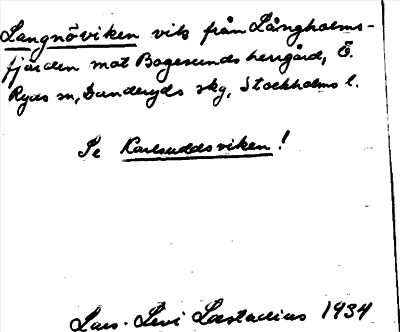 Langnöviken vik från Långholms-
fjärden mot Bogesunds herrgård, Ö.
Ryds sn, Danderyds skg, Stockholms l.
Se Karlsuddsviken!
Lars-Levi Læstadius 1934